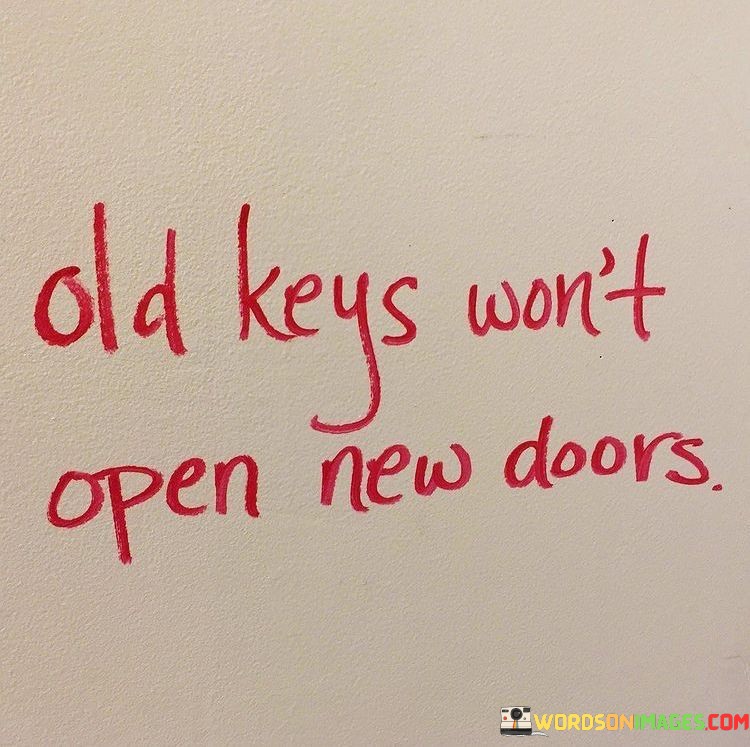 old keys won't
open new doors.
WORDSONIMAGES.COM